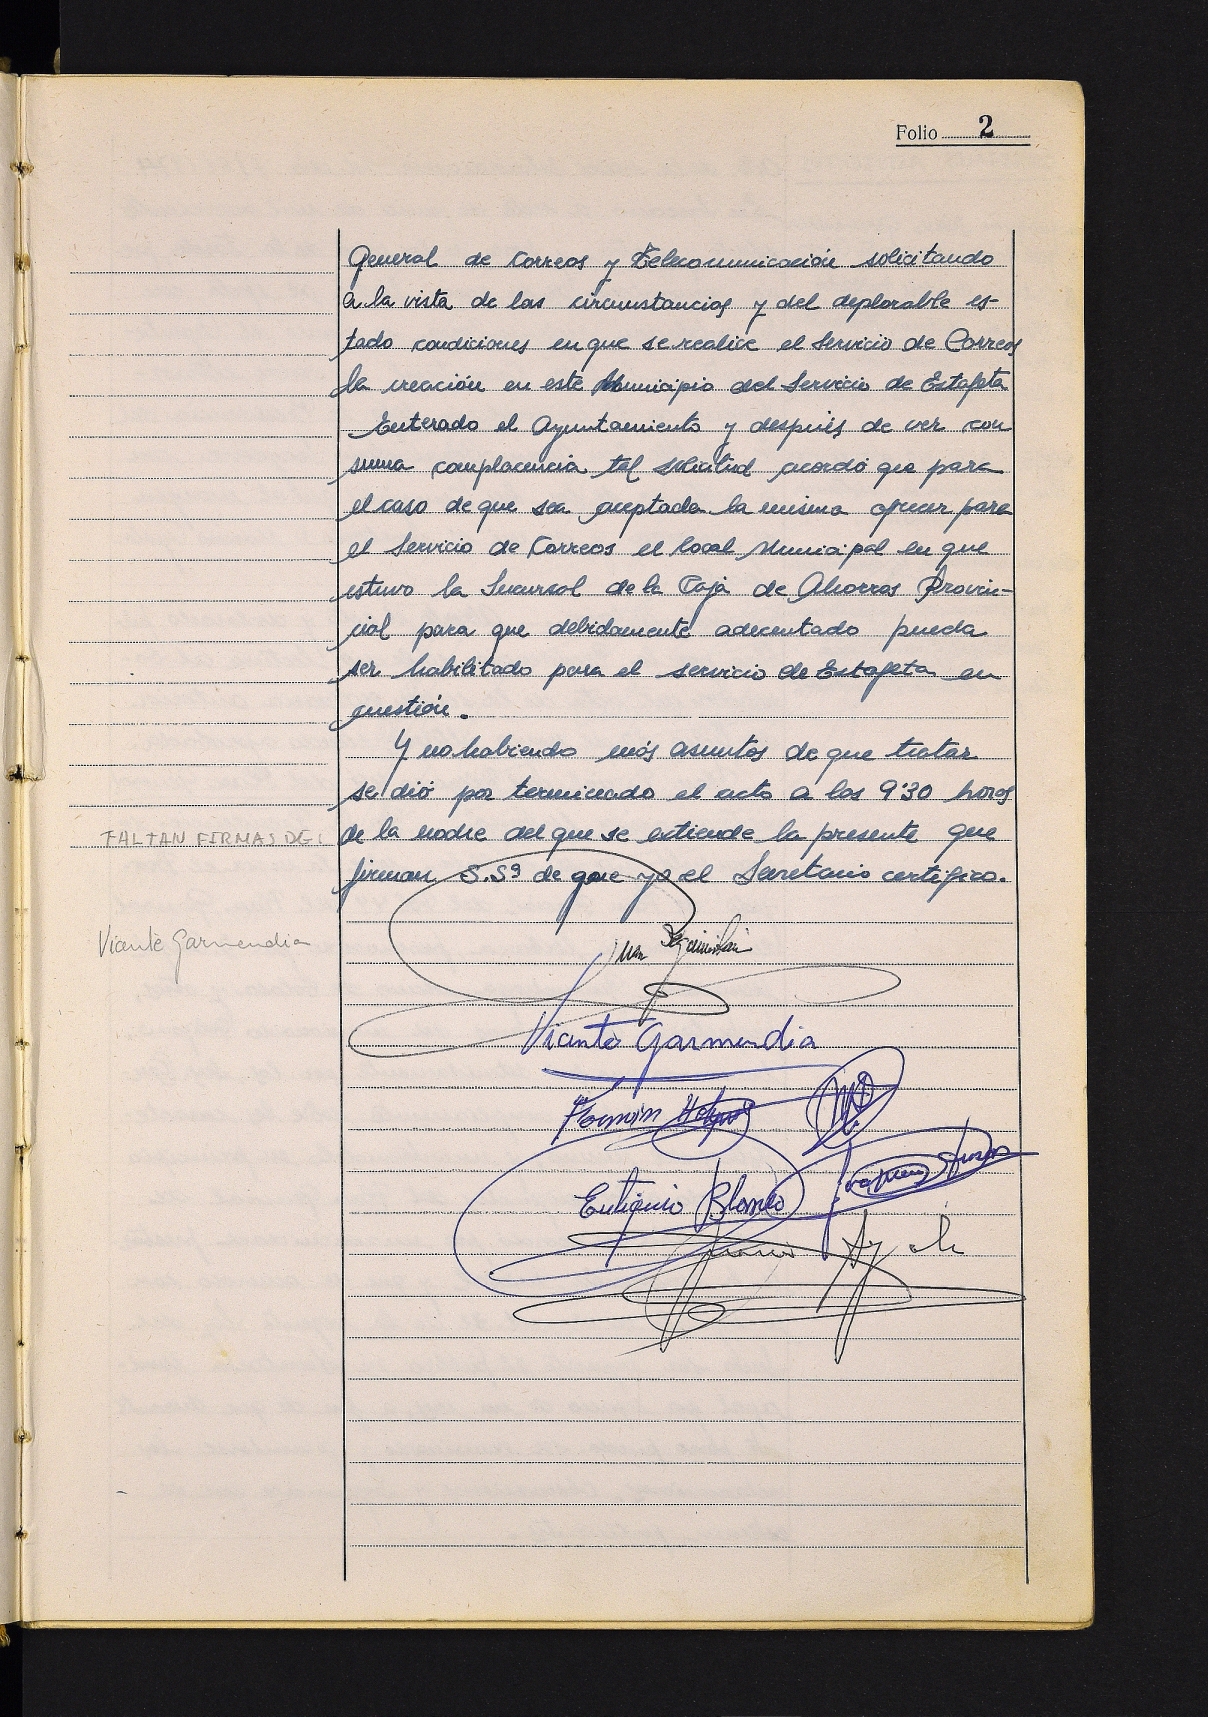 Folio 2
General de Correos y Telecomunicación solicitando
a la vista de las circunstancias y del deplorable es-
tado condiciones en que se realice el Servicio de Correos
la creación en este Municipio del Servicio de Estafeta
Enterado el Ayuntamiento y después de ver con
suma complacencia tal solicitud acordó que para
el caso de que sea aceptada la misma ofrecer para
el Servicio de Correos el local Municipal en que
estuvo la Sucursal de la Caja de Ahorros Provin-
cial para que debidamente adecentado pueda
ser habilitado para el servicio de Estafeta en
cuestión.
Y no habiendo más asuntos de que tratar
se dió por terminado el acto a las 9'30 horas
de la noche del que se extiende la presente que
firman S.Sª de que yo el Secretario certifico.
FALTAN FIRMAS DE:
Vicente Garmendia
Juan
Vicente Garmendia
Fermín
Eutiquio Blanco
Ayala